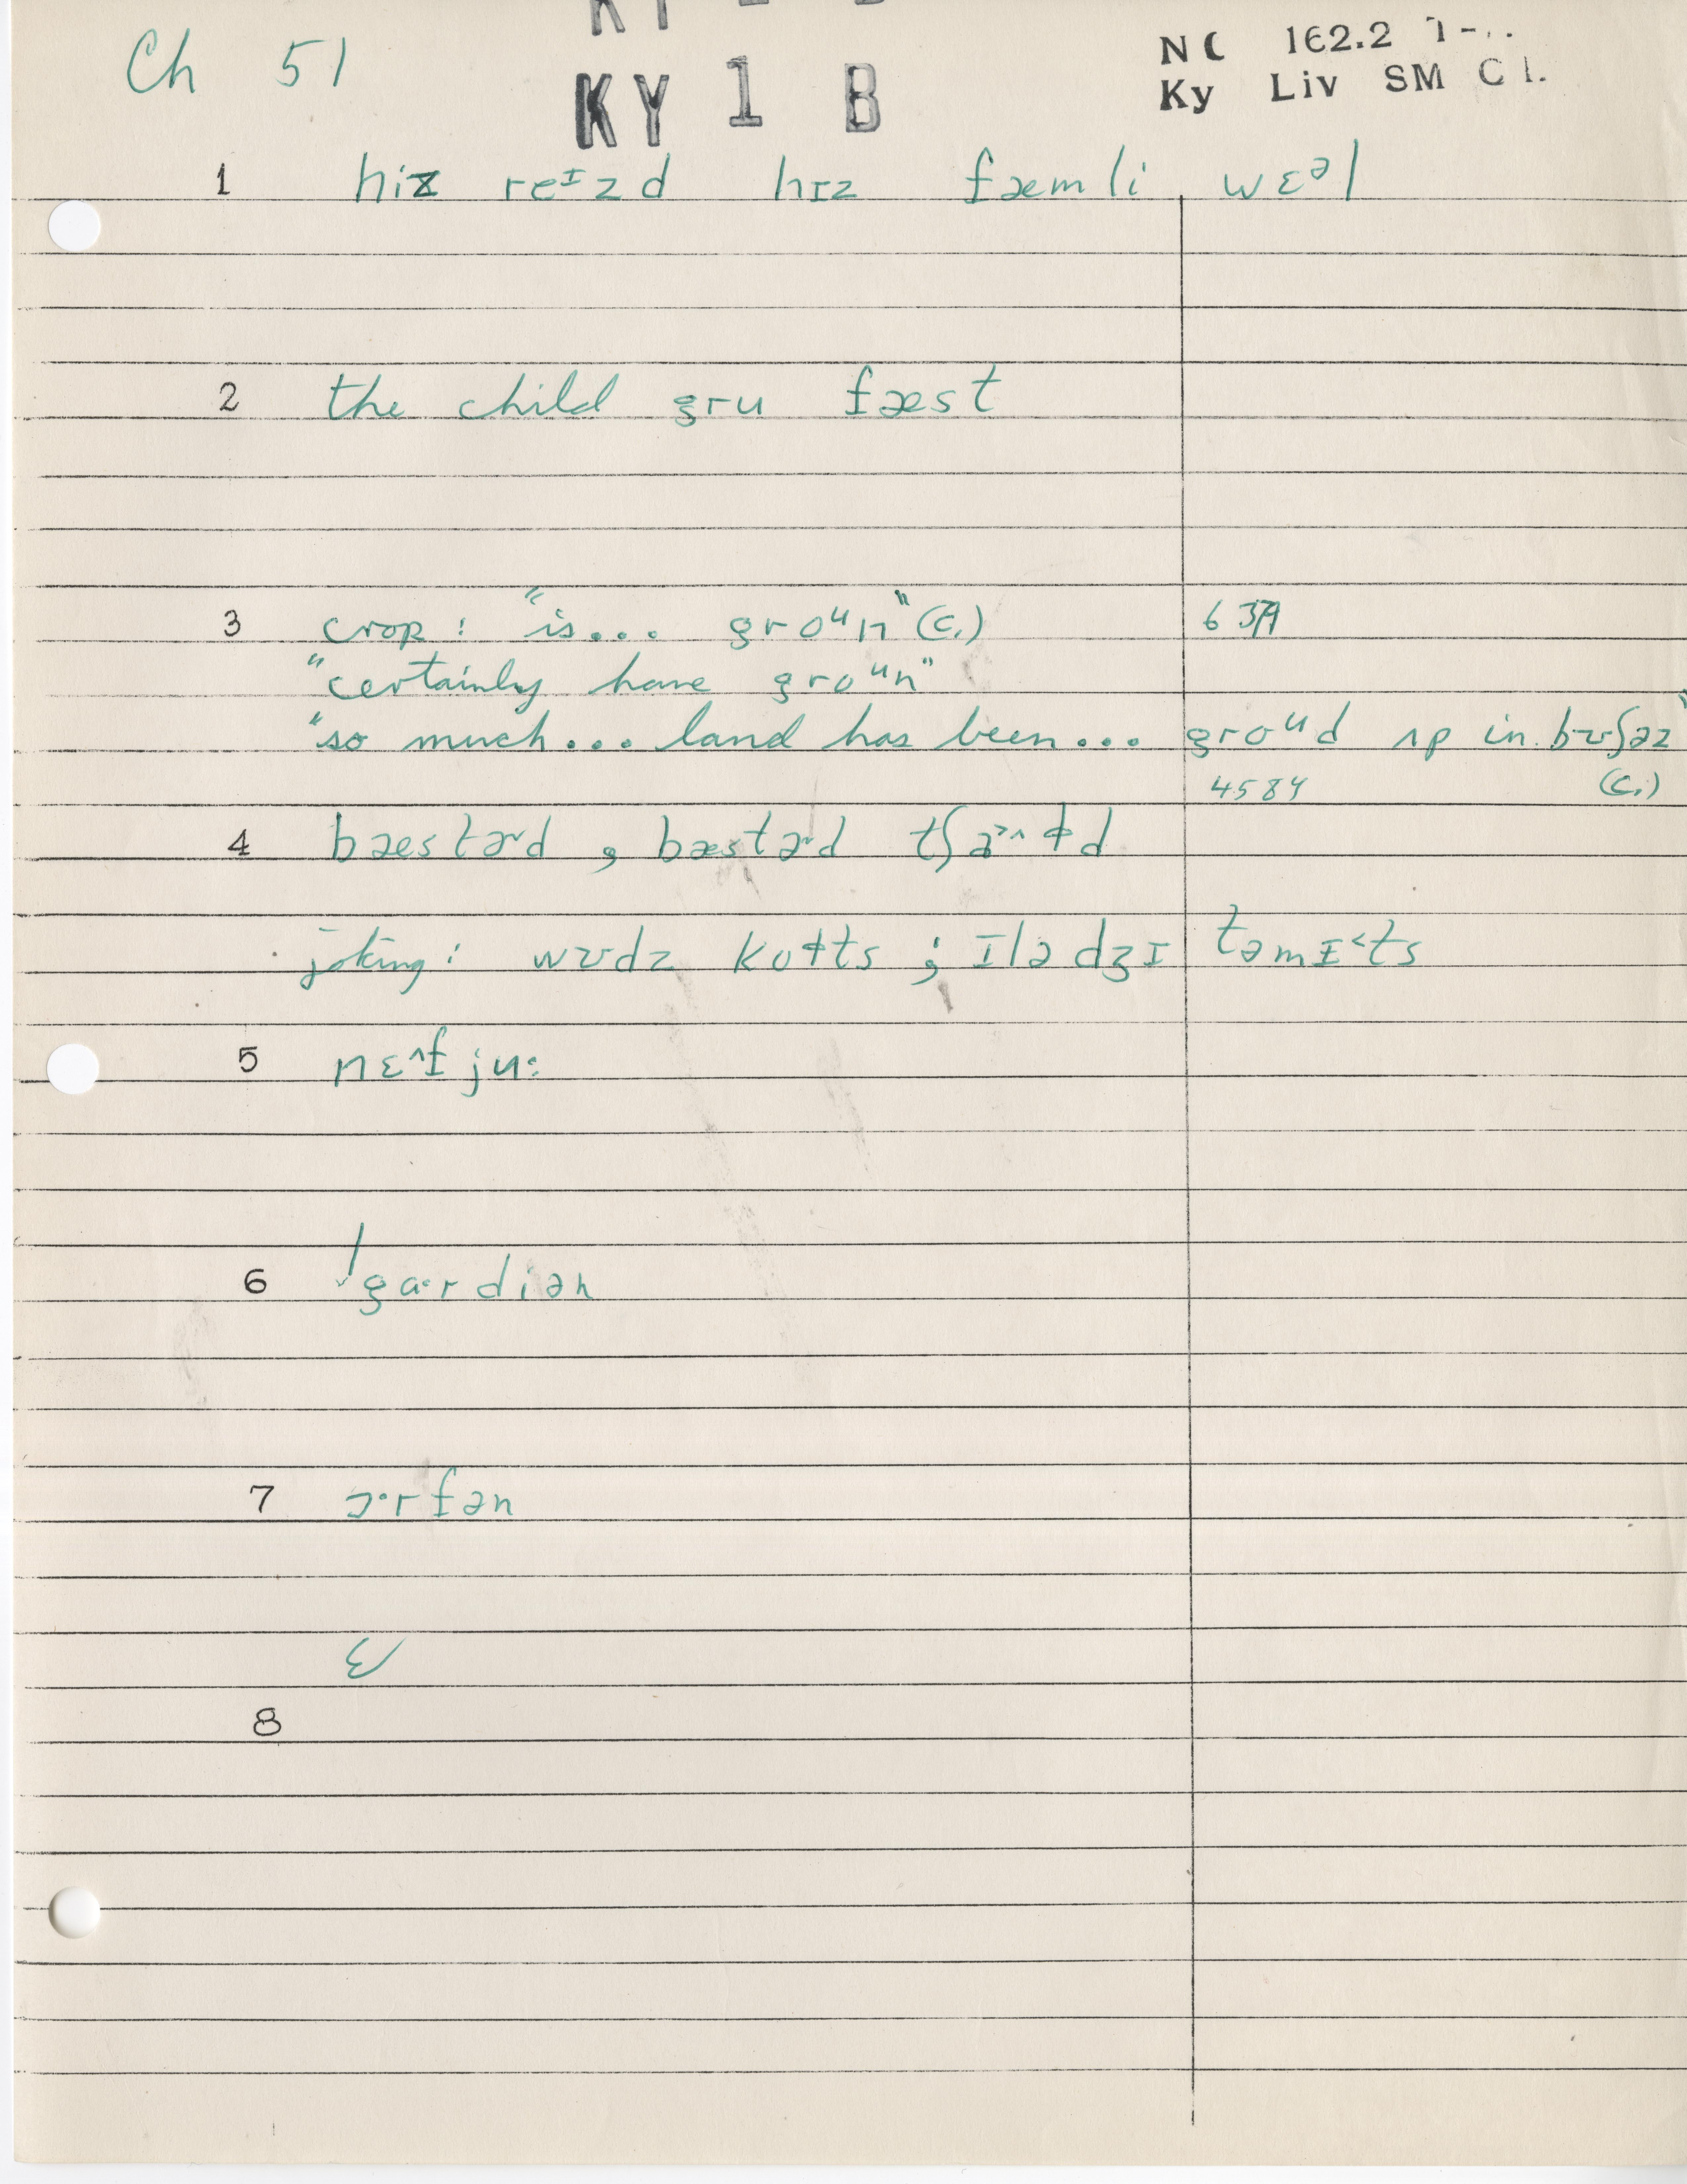 Ch 51
KY 1 B
NC 162.2
Ky Liv SM
1 hiz reᶦzd hɪz fæmli wɛᵊl
2 the child gru fæst
3 crop: "is... groᵘn" (c.) 637A
"certainly have groᵘn"
"so much... land has been... groᵘd ʌp in bʊʃəz"
4584 (c.)
4 bæstɚd , bæstɚd
joking: wʊdz koɫts ; ɪlədʒɪtəmɪ˂ts
5 nɛ^fju:
6 gɑ·rdiən
7 ɔ·rfən
8